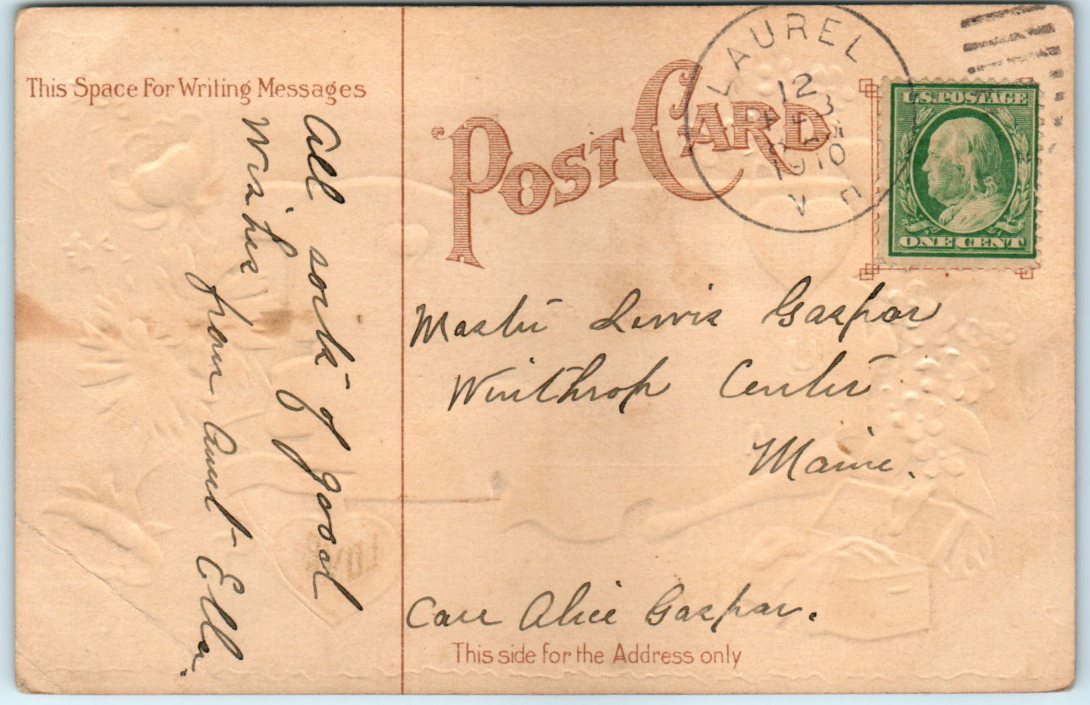 This Space For Writing Messages
All sorts of good
Wishes
from Aunt Ella.
POST CARD
LAUREL
12
FEB
1910
U.S. POSTAGE
ONE CENT
Master Lewis Gaspar
Winthrop Center
Maine.
Care Alice Gaspar.
This side for the Address only
LOVE